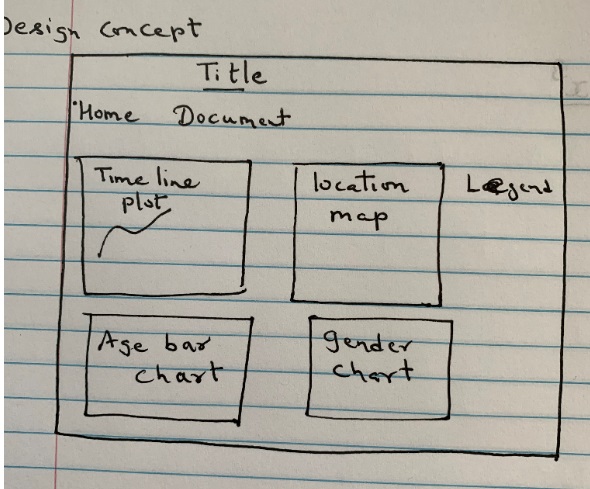 Design Concept
Title
Home Document
Time line
plot
location
map
Legend
Age bar
chart
gender
chart